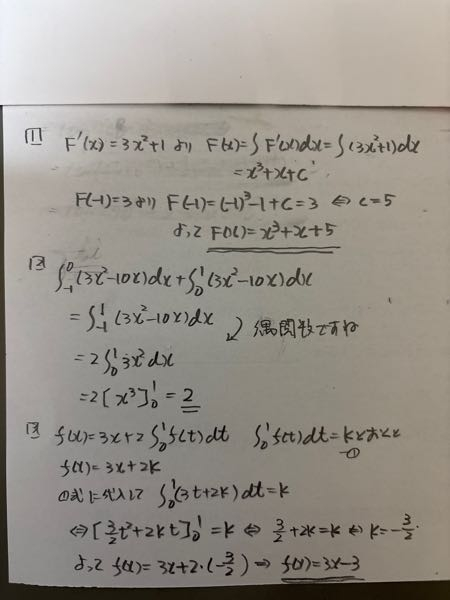 ① F'(x)=3x²+1 より F(x)=∫F'(x)dx=∫(3x²+1)dx
=x³+x+C
F(-1)=3より F(-1)=(-1)³-1+C=3 ⇔ C=5
よって F(x)=x³+x+5
② ∫₋₁⁰(3x²-10x)dx+∫₀¹(3x²-10x)dx
=∫₋₁¹(3x²-10x)dx
偶関数ですね
=2∫₀¹3x²dx
=2[x³]₀¹=2
③ f(x)=3x+2∫₀¹f(t)dt ∫₀¹f(t)dt=kとおくと
①
f(x)=3x+2k
①式に代入して ∫₀¹(3t+2k)dt=k
⇔[3/2t²+2kt]₀¹=k ⇔ 3/2+2k=k ⇔ k=-3/2.
よって f(x)=3x+2·(-3/2) ⇒ f(x)=3x-3